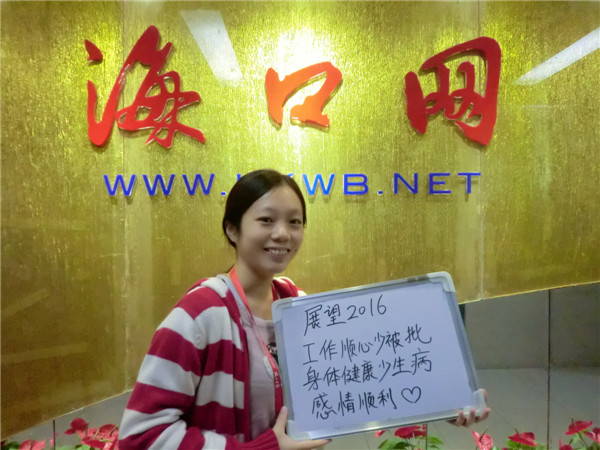 海口网
WWW.HKWB.NET
展望2016
工作顺心少被批
身体健康少生病
感情顺利♡